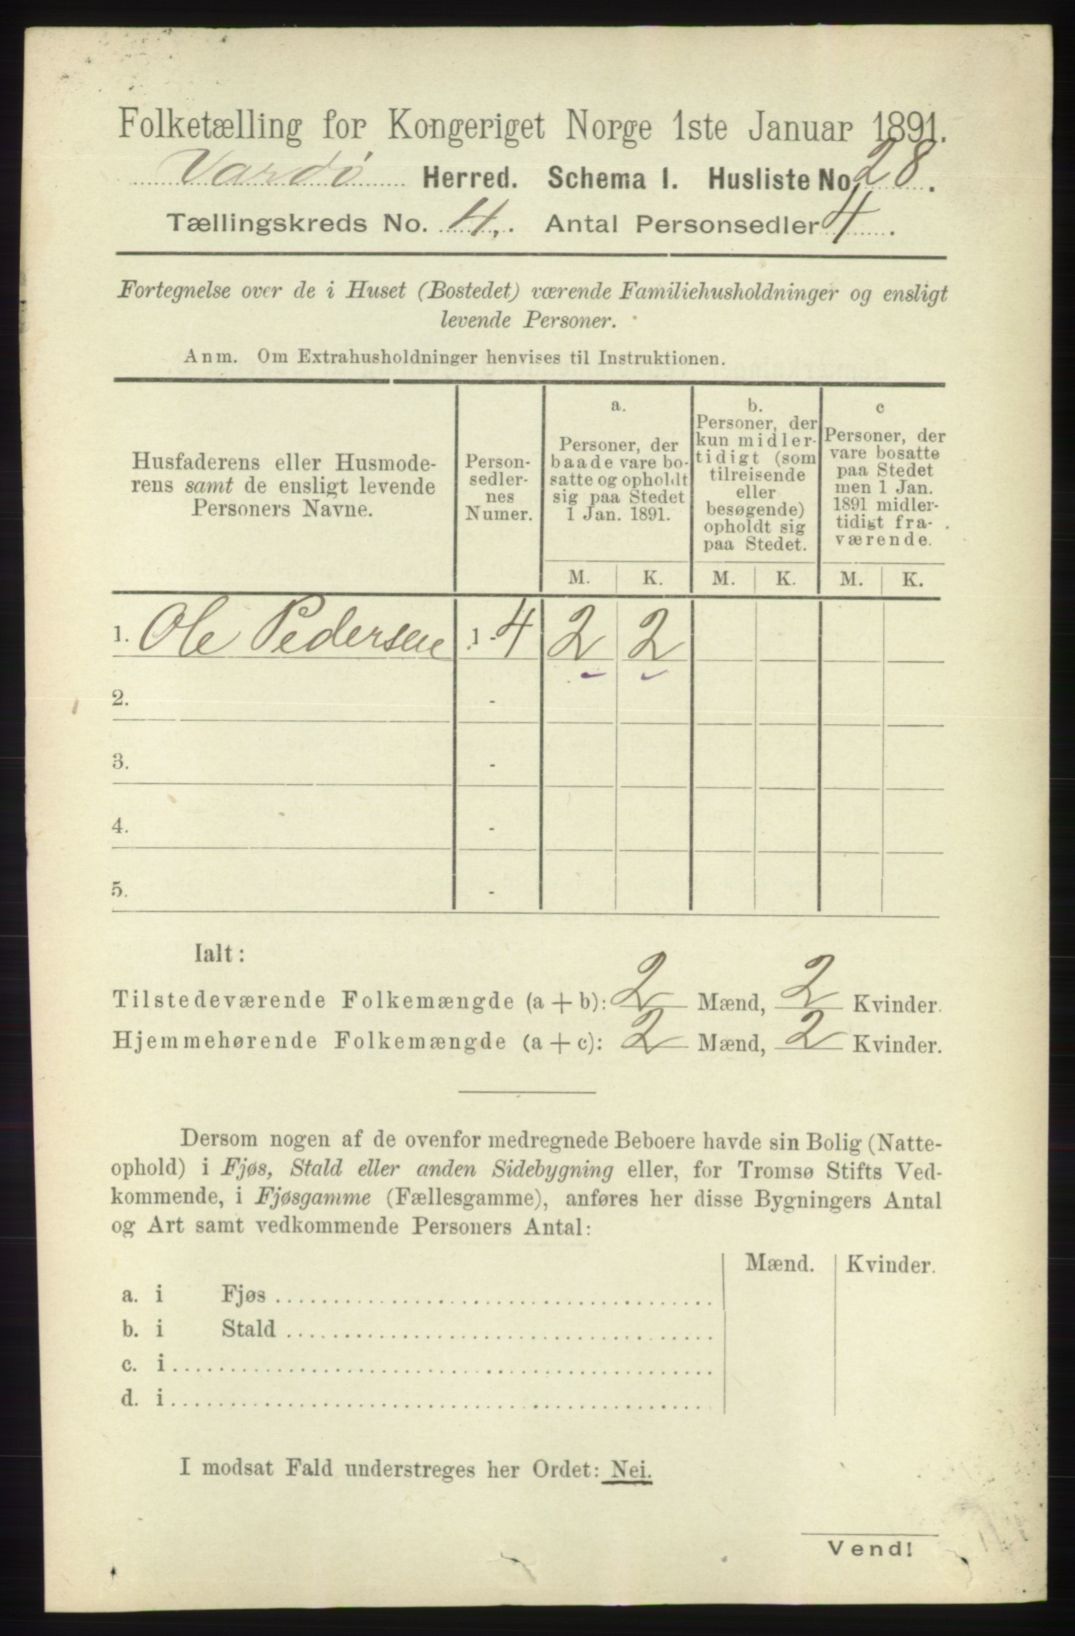 Folketælling for Kongeriget Norge 1ste Januar 1891.
Vardø Herred. Schema I. Husliste No. 28.
Tællingskreds No. 4. Antal Personsedler 4.
Fortegnelse over de i Huset (Bostedet) værende Familiehusholdninger og ensligt
levende Personer.
Anm. Om Extrahusholdninger henvises til Instruktionen.
Husfaderens eller Husmode-
rens samt de ensligt levende
Personers Navne.
Person-
sedler-
nes
Numer.
a.
Personer, der
baade vare bo-
satte og opholdt
sig paa Stedet
1 Jan. 1891.
b.
Personer, der
kun midler-
tidigt (som
tilreisende
eller
besøgende)
opholdt sig
paa Stedet.
c
Personer, der
vare bosatte
paa Stedet
men 1 Jan.
1891 midler-
tidigt fra-
værende.
M. K. M. K. M. K.
1. Ole Pedersen 1 - 4 2 2
2. -
3. -
4. -
5. -
Ialt:
Tilstedeværende Folkemængde (a + b): 2 Mænd, 2 Kvinder.
Hjemmehørende Folkemængde (a + c): 2 Mænd, 2 Kvinder.
Dersom nogen af de ovenfor medregnede Beboere havde sin Bolig (Natte-
ophold) i Fjøs, Stald eller anden Sidebygning eller, for Tromsø Stifts Ved-
kommende, i Fjøsgamme (Fællesgamme), anføres her disse Bygningers Antal
og Art samt vedkommende Personers Antal:
Mænd. Kvinder.
a. i Fjøs
b. i Stald
c. i
d. i
I modsat Fald understreges her Ordet: Nei.
Vend!